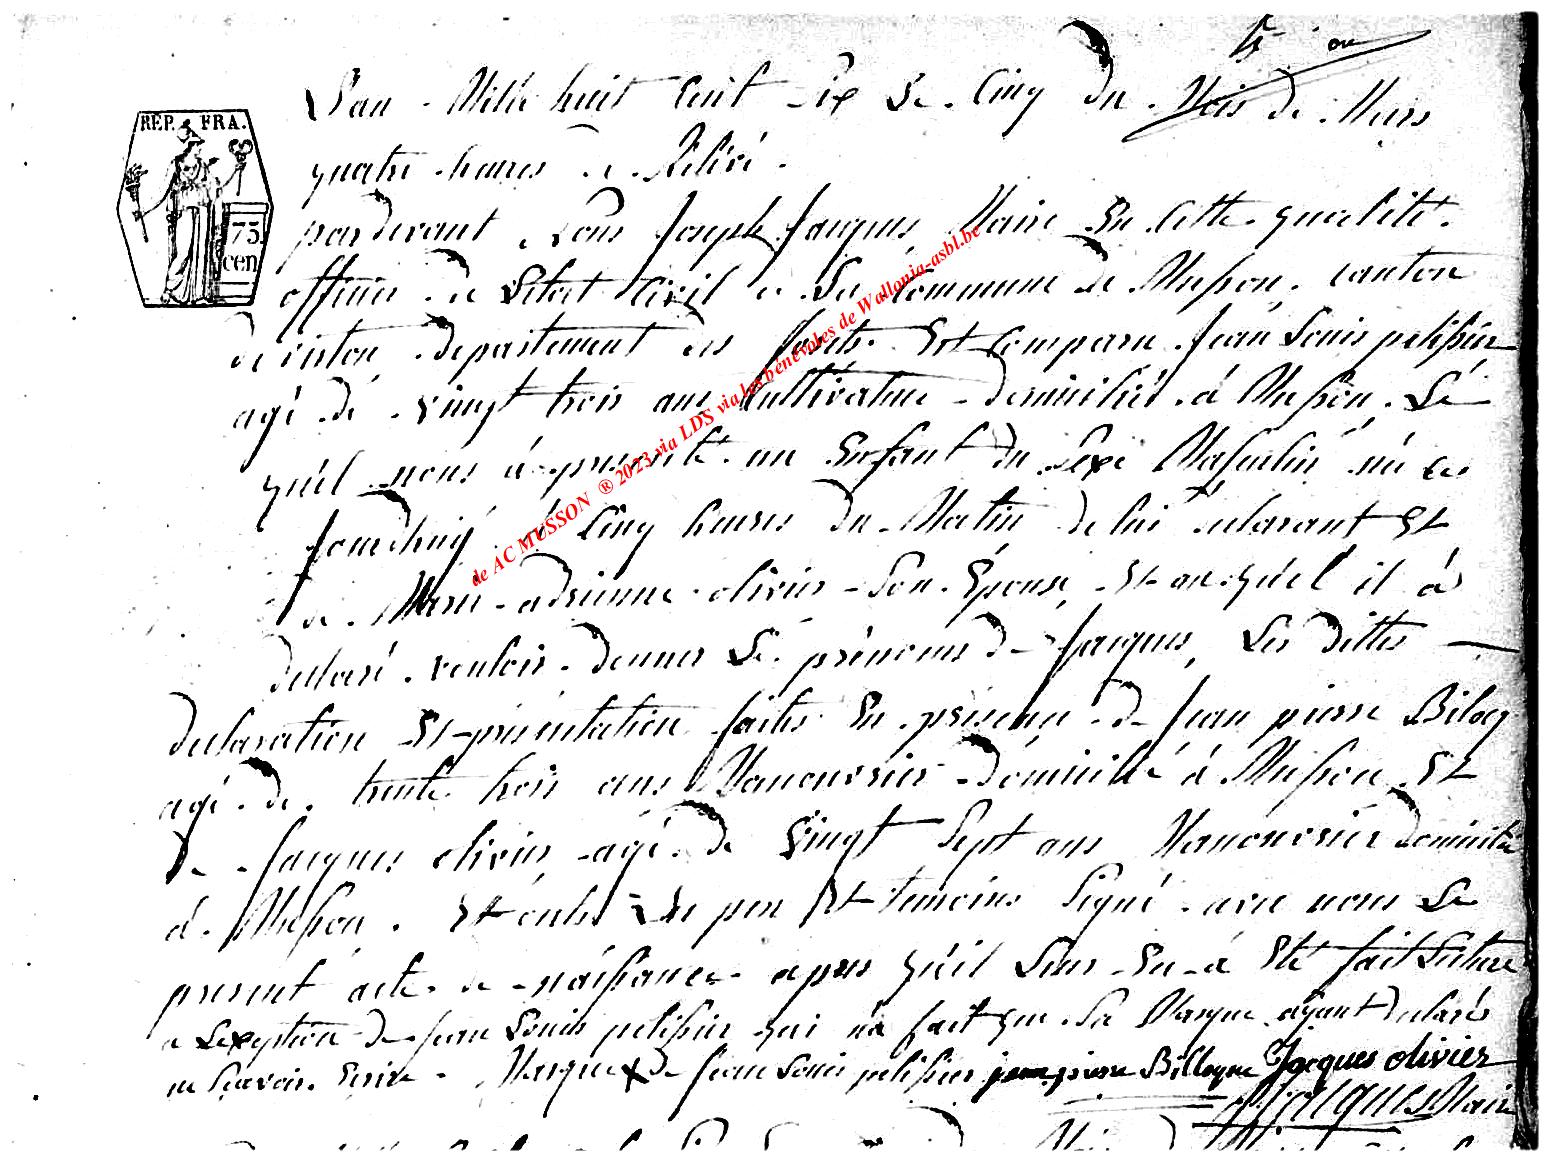 L'an Mille huit Cent Dix Le Cinq du Mois de Mars
quatre heures de Relévé.
pardevant Nous Joseph Jacques Maire En Cette qualité
officier de L'état Civil de La Commune de Musson, canton
de virton, departement des forêts. Est Comparu Jean Louis pelissier
agé de vingt trois ans Cultivateur domicilié à Musson. Lé
quel nous à présenté un Enfant du Sexe Masculin né ce
jourdhuy à Cinq heures du Matin de lui declarant Et
de Marie adrienne olivier Son Épouse, Et auquel il à
declaré vouloir donner Lé prénoms de Jacques, Les dittes
declaration Et présentation faites En présence de Jean pierre Bilocq
agé de trente trois ans Manouvrier domicilié à Musson Et
de Jacques olivier agé de Vingt Sept ans Manouvrier domicilié
à Musson. Et ont Le per Et temoins Signé avec nous Le
present acte de naissance apres qu'il Leur En à Eté fait Lecture
a Lexeption de Jean Louis pelissier qui n'a fait que Sa Marque ayant declarés
ne Scavoir Ecrire. Marque X de Jean Louis pelissier jean pierre Billoque Jacques olivier
Jacques Maire
REP. FRA.
75
cen
de AC MUSSON ® 2023 via LDS via les bénévoles de Wallonia-asbl.be